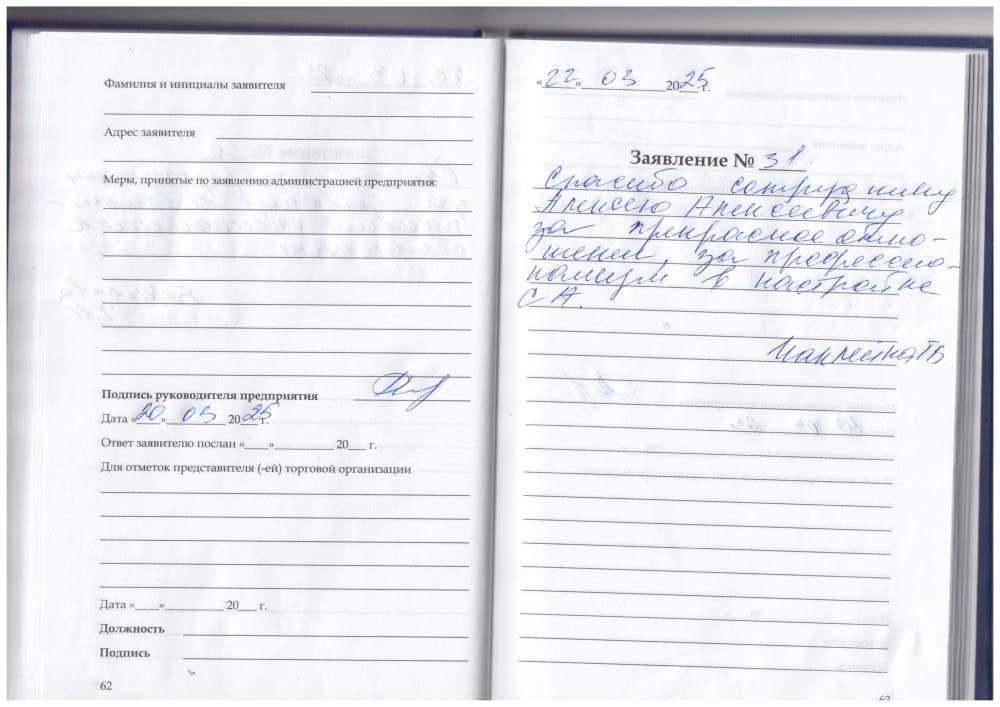 Фамилия и инициалы заявителя
Адрес заявителя
Меры, принятые по заявлению администрацией предприятия:
Подпись руководителя предприятия
Дата «20» 03 2025 г.
Ответ заявителю послан «____»__________ 20___ г.
Для отметок представителя (-ей) торговой организации
Дата «____»__________ 20___ г.
Должность
Подпись
62
«22» 03 2025 г.
Заявление № 31.
Спасибо сотруднику
Алексею Алексеевичу
за прекрасное отно-
шение, за профессио-
нализм в настройке
СА.
63